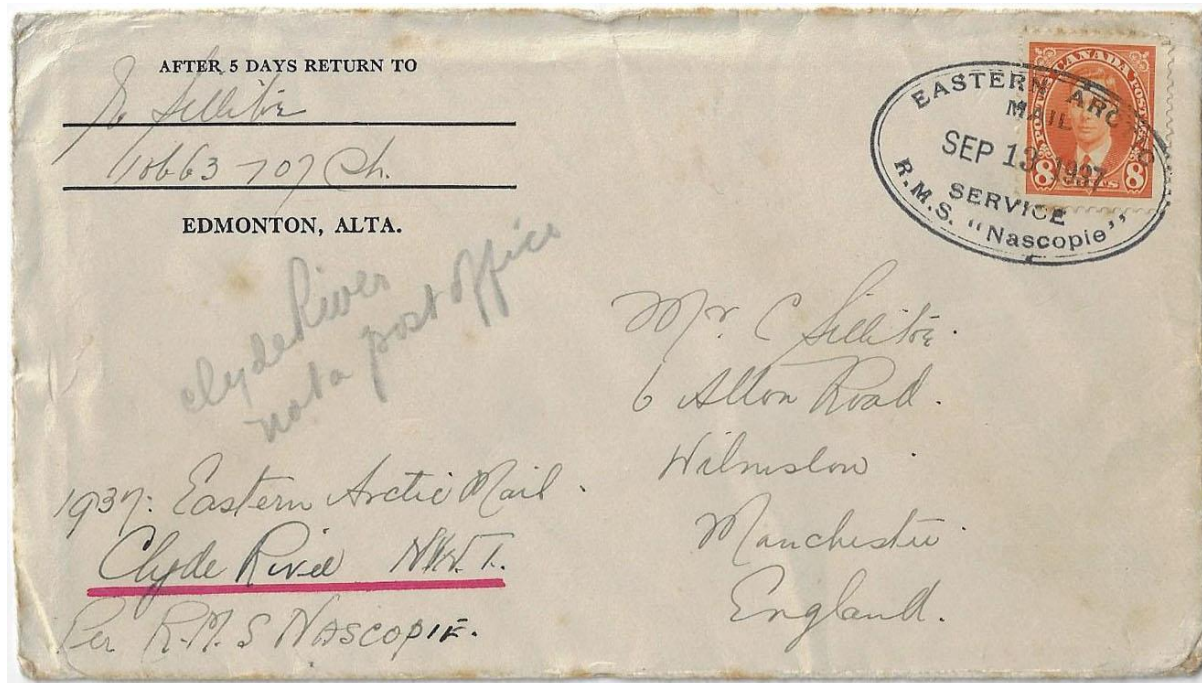 AFTER 5 DAYS RETURN TO
Sillitoe
10663 - 107 Ch.
EDMONTON, ALTA.
CANADA
POSTES POSTAGE
8 CENTS 8
EASTERN ARCTIC
MAIL
SEP 13 1937
SERVICE
R.M.S. "Nascopie"
Clyde River
not a post office
Mr. C Sillitoe.
6 Alton Road.
Wilmslow
Manchester
England.
1937: Eastern Arctic Mail.
Clyde River N.W.T.
Per R.M.S NASCOPIE.